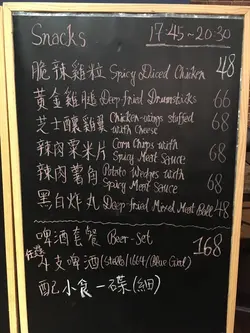 Snacks 17:45~20:30
脆辣雞粒 Spicy Diced Chicken 48
黃金雞腿 Deep-fried Drumsticks 66
芝士釀雞翼 Chicken-wings stuffed with Cheese 68
辣肉粟米片 Corn Chips with Spicy Meat Sauce 68
辣肉薯角 Potato Wedges with Spicy Meat Sauce 68
黑白炸丸 Deep-fried Mixed Meat Ball 48
啤酒套餐 Beer-Set 168
任選 支啤酒(Stella/1664/Blue Girl)
配小食一碟(細)